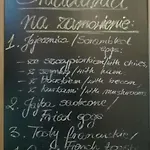 Śniadania
na zamówienie:
1. Jajecznica / Scrambled
eggs:
- ze szczypiorkiem / with chives
- z szynką / with ham
- z boczkiem / with bacon
- z kurkami / with mushrooms
2. Jajka sadzone /
Fried eggs
3. Tosty francuskie /
French toast